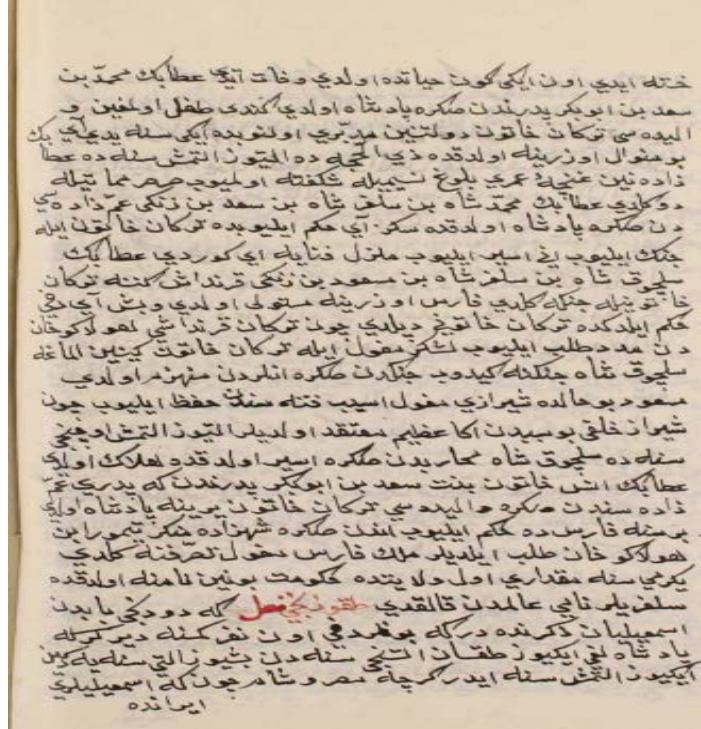 خته ايدي اون ايكي كون حياتده اولدي وفات ايتدي عطابك محمد بن
سعد بن ابوبكر پدرندن صكره پادشاه اولدي كندى طفل اولمغين و
الیده سى تركان خاتون دولتنين مدبّرى اولنوبده ايكى سنه يدي آي بك
بو منوال اوزرينه اولدقده ذي الحجه ده التيوز التمش سنه ده عطا
ذاده نين غنچهٔ عمري بلوغ نسيميله شكفته اولميوب صرصر مماتيله
دوكلدي عطابك محمد شاه بن سلغر شاه بن سعد بن زنكى عم زاده سي
دن صكره پادشاه اولدقده سكز آي حكم ايليوبده تركان خاتون ايله
جنك ايليوب انى اسير ايليوب منزل فنايه اي كوردي عطابك
سلچوق شاه بن سلغر شاه بن مسعود بن زنكى قرنداش كننه تركان
خاتونيله جنكه كلدي فارس اوزرينه مستولى اولدي وبش آي دخى
حكم ايلدكده تركان خاتونى ديلدي چون تركان قرنداشى لهولاكوخان
دن مدد طلب ايليوب لشكر مغول ايله تركان خاتون كينين الماغه
سلچوق شاه جنكنه كيدوب جنكدن صكره انلردن منهزم اولدي
مسعود بوحالده شيرازي مغول اسيب فتنه سندن حفظ ايليوب چون
شيراز خلقى بوسبيدن اكا عظيم معتقد اولديلر التيوز التمش اوچنجى
سنه ده سلچوق شاه محاربدن صكره اسير اولدقده هلاك اولدي
عطابك انش خاتون بنت سعد بن ابوبكر پدرندن كه پدري عم
ذاده سندن صكره والیده سى تركان خاتون يرينه پادشاه اولدي
بر سنه فارس ده حكم ايليوب اندن صكره شهزاده منكر تيمورا بن
هولاكو خان طلب ايلديلر ملك فارس مغول تصرفنه كلدي
يكرمي سنه مقداري اول ولايتده حكومت بونين نامنه اولدقده
سلغريلر نامى عالمدن قالقدى طقوزنجى فصل كه دودكى بابدن
اسمعيليان ذكرنده در كه بوفرد دخى اون نفر كسنه ديركرله
پادشاهلغى ايكيوز طقسان التنجى سنه دن بشيوز التى سنه يه دكين
ايكيوز التمش سنه ايدر كرچه مصر و شام چون كه اسمعيليلري
ايرانده